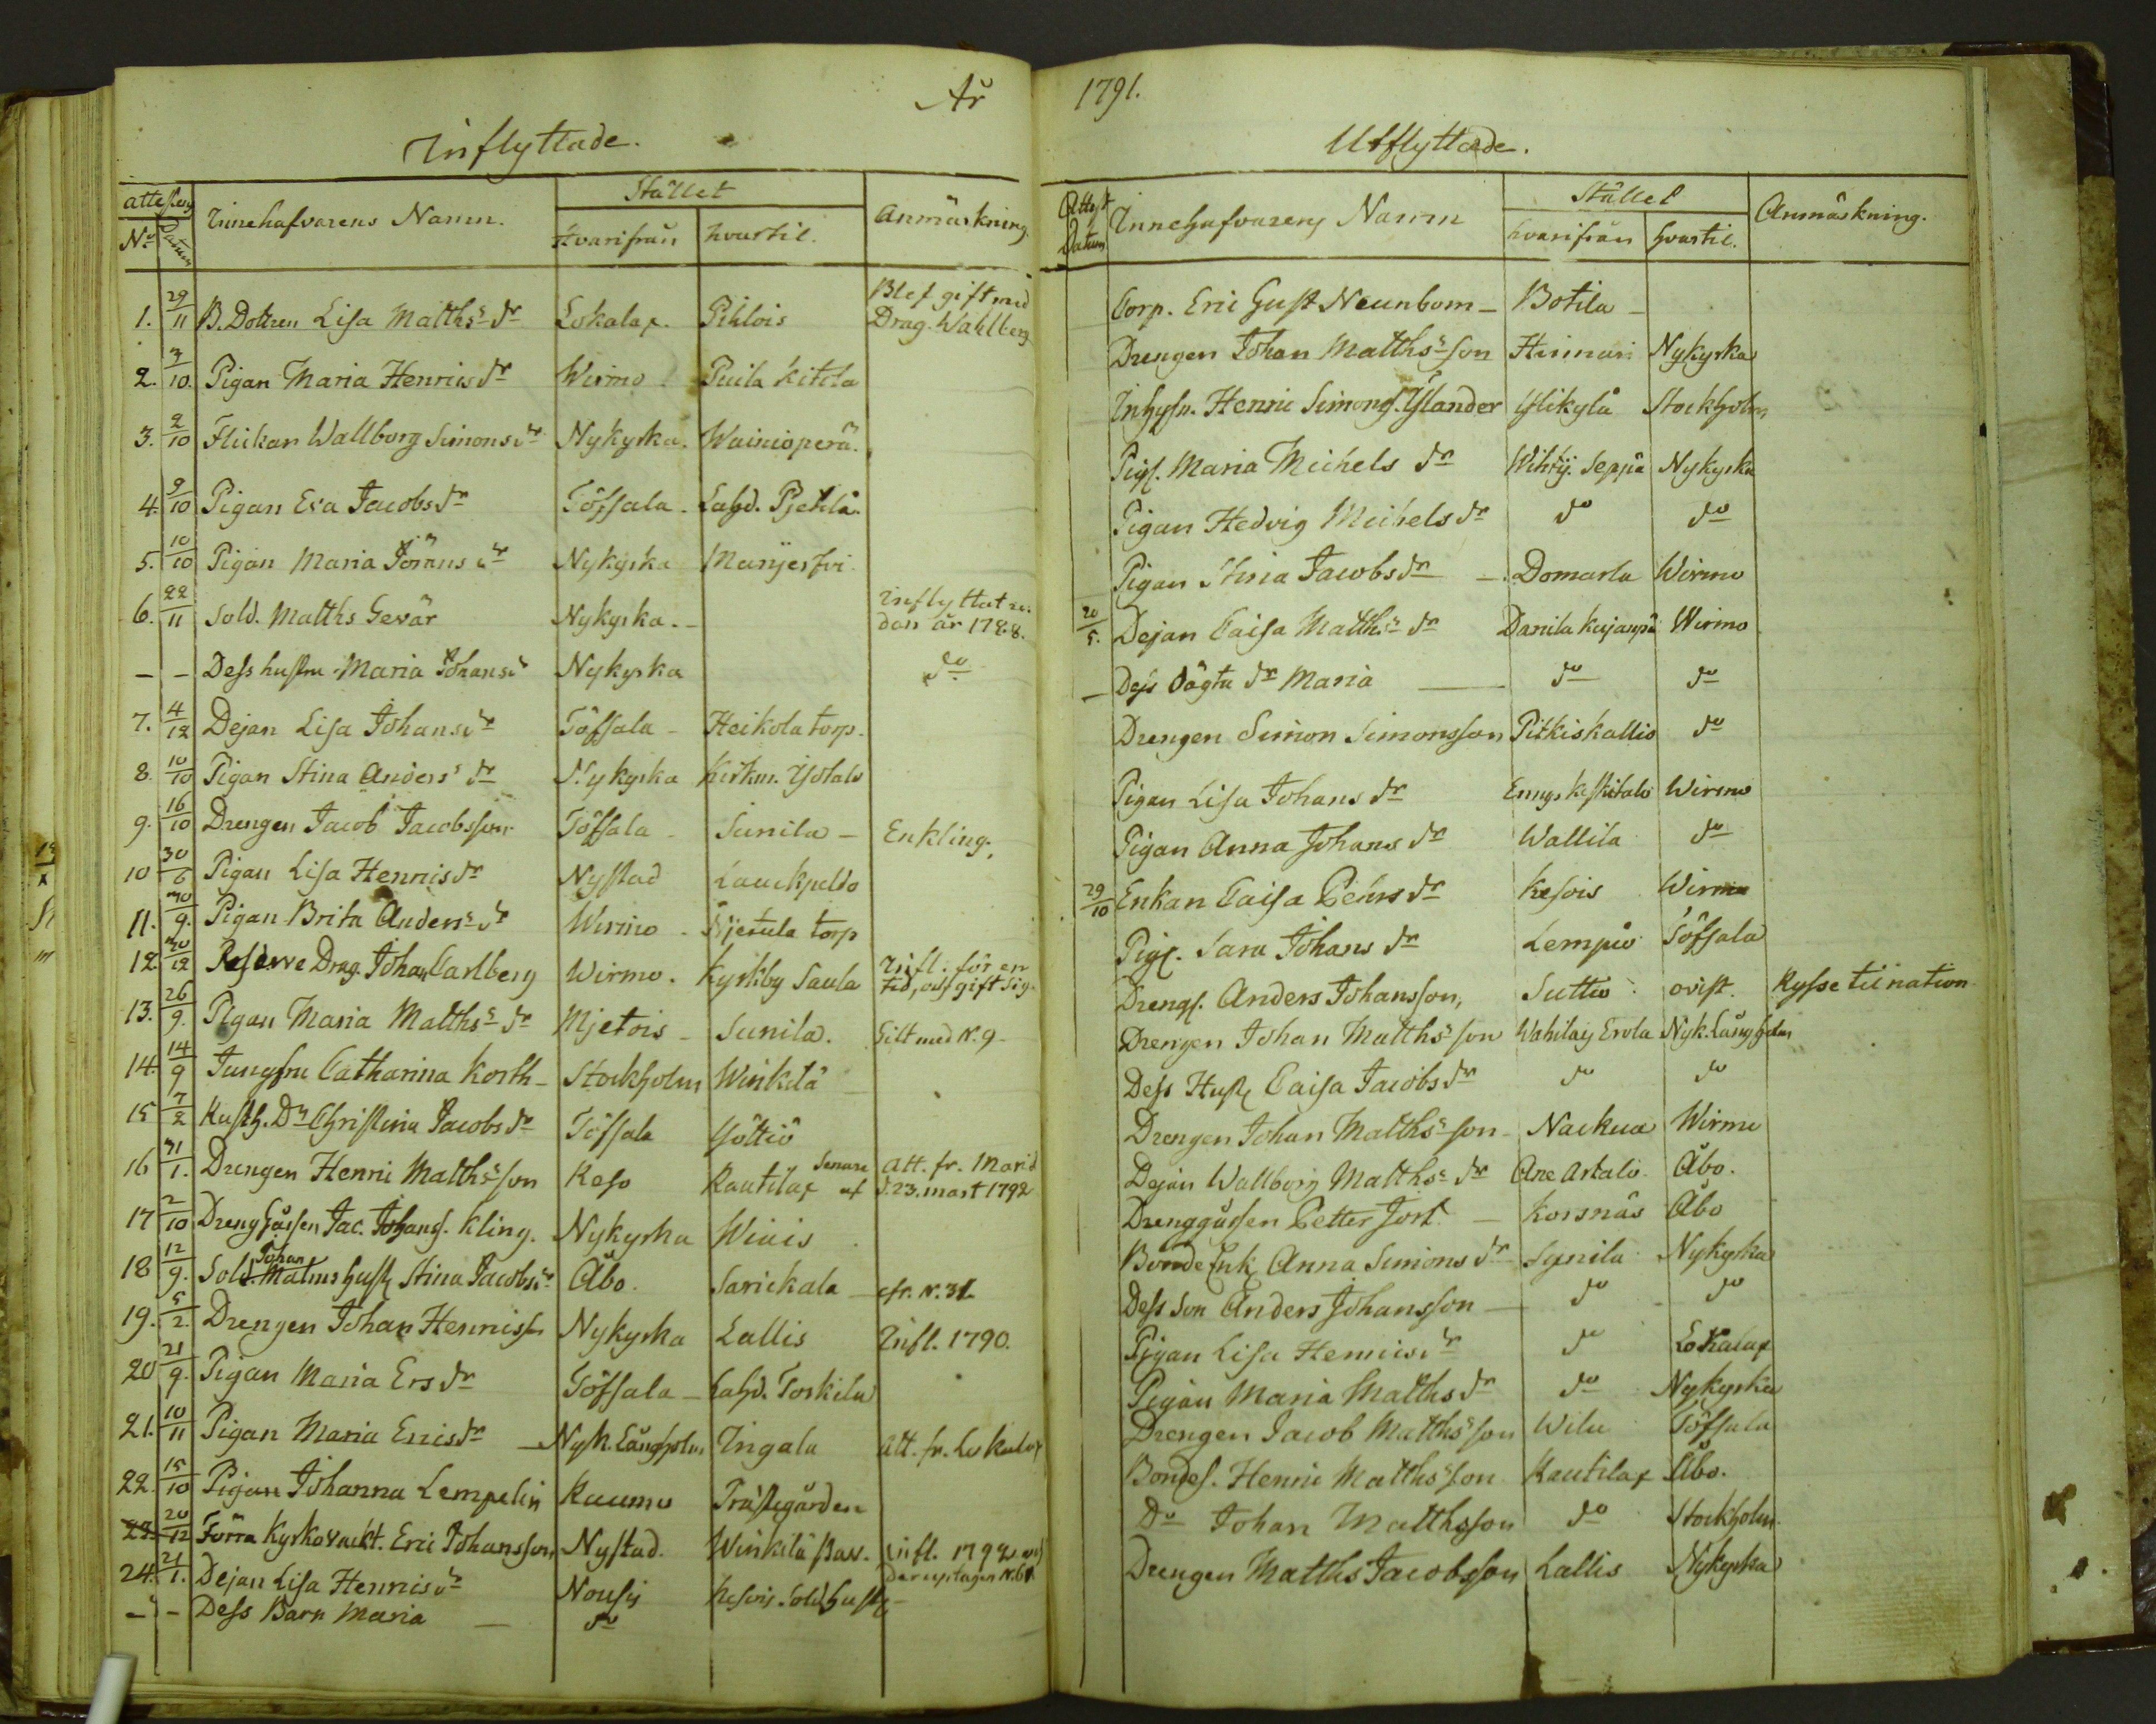 År
Inflyttade.
attesten
Innehafvarens Namn.
Stället
Anmärkning
No Datum
Hvarifrån hvartil.
1. 29/11 B. Dottren Lisa Matths dr Lokalax. Pihlois Blef gift med
Drag. Wahlberg
2. 3/10. Pigan Maria Henrics dr Wirmo Puila Kitola
3. 2/10 Flickan Wallborg Simonsdr Nykyrka. Wainioperä.
4. 9/10 Pigan Eva Jacobs dr Töfsala. Lahd.
5. 10/10 Pigan Maria Görans dr Nykyrka
6. 22/11 Sold. Matths Gevär Nykyrka. Inflyttat re-
dan år 1788.
- - Dess hustru Maria Johansdr Nykyrka do
7. 4/12 Dejan Lisa Johansdr Töfsala Heikola torp.
8. 10/10 Pigan Stina Anders dr Nykyrka Kirkm. Ysotalo
9. 16/10 Drengen Jacob Jacobsson Töfsala Sunila Enkling.
10 30/6 Pigan Lisa Henricsdr Nystad
11. 30/9. Pigan Brita Anders dr Wirmo torp
12. 30/12 Reserve Drag. Johan Carlberg Wirmo. Kyrkby Saula Infl. för en
tid, och gift sig.
13. 26/9. Pigan Maria Matths dr Mjetois Sunila. Gift med N. 9
14. 14/9 Jungfru Catharina Korth Stockholm Winkilä
15 7/2 Rusth. Dr Christina Jacobs dr Töfsala Yöttiö
16 31/1. Drengen Henric Matths son Keso Rautilax Senare Att. fr.
d. 23. mart 1792
17 2/10 Dreng Gåssen Jac. Johans. Kling. Nykyrka Wiais
18 12/9. Sold. Johan Malms hust Stina Jacobsdr Åbo. Sarickala cfr. N. 31
19. 5/2. Drengen Johan Henricsson Nykyrka Lallis Infl. 1790.
20 21/9. Pigan Maria Ers dr Töfsala Lahd. Torkila
21. 10/11 Pigan Maria Ericsdr Nyk. Långholm Ingala Att. fr. Lokalax
22. 15/10 Pigan Johanna Lempelin Raumo Prästegården
23. 20/12 Förra Kyrkovackt. Eric Johansson, Nystad. Winkilä Back. Infl. 1792 och
der uptagen N. 61
24. 21/1. Dejan Lisa Henricsdr Nousis Kesois Sold. hustru
- - Dess Barn Maria do
1791.
Utflyttade.
Attest
Datum
Innehafvarens Namn
Stället
Anmärkning.
hvarifrån hvartil.
Corp. Eric Gust Neunbom Botila
Drengen Johan Matths son Hinnari Nykyrka
Inhysn. Henric Simons. Ylander Ylikylä Stockholm
Pig. Maria Michels dr Wihty. Seppä Nykyrka
Pigan Hedvig Michels dr do do
Pigan Stina Jacobs dr Domarla Wirmo
20/5. Dejan Caisa Matths dr Danila Wirmo
- Dess oägta dr Maria do do
Drengen Simon Simonsson Pitkiskallio do
Pigan Lisa Johans dr Ennys Keskitalo Wirmo
Pigan Anna Johans dr Wallila do
29/10 Enkan Caisa Pehrs dr Kesois Wirmo
Pig. Sara Johans dr Lempio Töfsala
Dreng. Anders Johansson, Suttio ovist. Rysse til nation
Drengen Johan Matths son Wahilais Erola Nyk. Långholm
Dess Hust Caisa Jacobs dr do do
Drengen Johan Matths son Nackua Wirmo
Dejan Wallborg Matths dr Åbo.
Drenggåssen Petter Jort Korsnäs Åbo
Bonde Enk Anna Simons dr Synila Nykyrka
Dess Son Anders Johansson do do
Pigan Lisa Henricsdr do Lokalax
Pigan Maria Matths dr do Nykyrka
Drengen Jacob Matths son Wilu Töfsala
Bondes. Henric Matths son Rautilax Åbo.
Do Johan Matthsson do Stockholm.
Drengen Matths Jacobsson Lallis Nykyrka